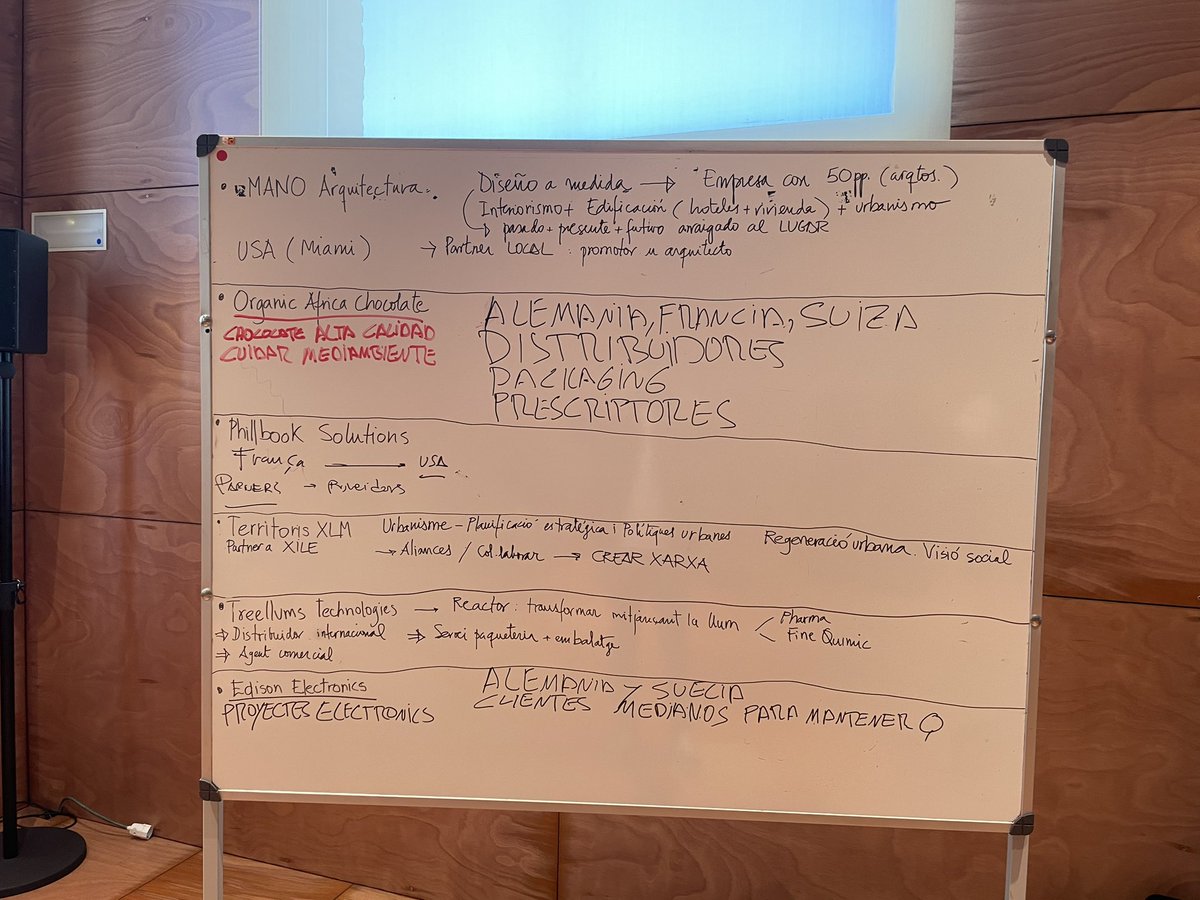 • MANO Arquitectura. Diseño a medida → Empresa con 50 pp. (arqtos.)
Interiorismo + Edificación (hoteles + vivienda) + urbanismo
↳ pasado + presente + futuro arraigado al LUGAR
USA (Miami) → Partner LOCAL : promotor u arquitecto
• Organic Africa Chocolate
CHOCOLATE ALTA CALIDAD
CUIDAR MEDIAMBIENTE
ALEMANIA, FRANCIA, SUIZA
DISTRIBUIDORES
PACKAGING
PRESCRIPTORES
• Phillbook Solutions
França → USA
PARNERS → Proveidors
• Territoris XLM Urbanisme - Planificació estratégica i Polítiques urbanes Regeneració urbana. Visió social
Partner a XILE → Aliances / Col·laborar → CREAR XARXA
• Treellums technologies → Reactor : transformar mitjançant la llum < Pharma
Fine Químic
⇒ Distribuidor internacional ⇒ Servei paqueteria + embalatge
⇒ Agent comercial
• Edison Electronics
PROYECTES ELECTRONICS
ALEMANIA Y SUECIA
CLIENTES MEDIANOS PARA MANTENER Q